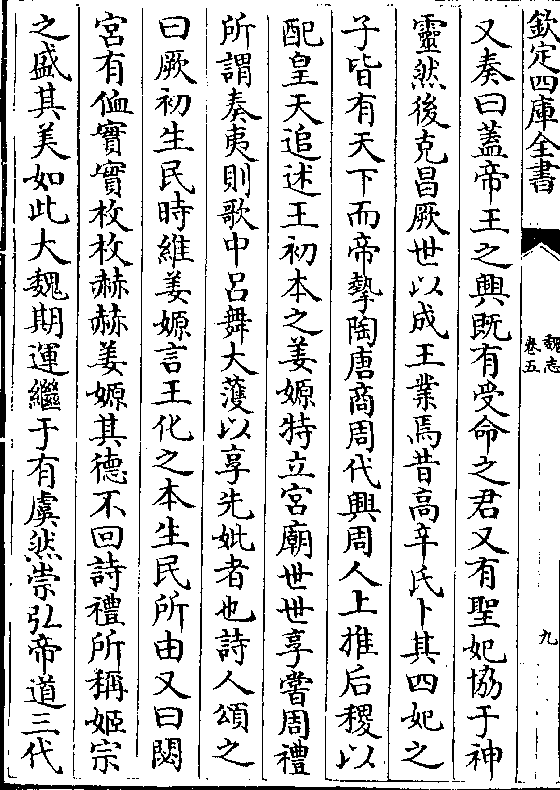 欽定四庫全書
魏志
卷五
九
又奏曰蓋帝王之興既有受命之君又有聖妃協于神
靈然後克昌厥世以成王業焉昔高辛氏卜其四妃之
子皆有天下而帝摯陶唐商周代興周人上推后稷以
配皇天追述王初本之姜嫄特立宮廟世世享嘗周禮
所謂奏夷則歌中呂舞大濩以享先妣者也詩人頌之
曰厥初生民時維姜嫄言王化之本生民所由又曰閟
宮有侐實實枚枚赫赫姜嫄其德不回詩禮所稱姬宗
之盛其美如此大魏期運繼于有虞然崇弘帝道三代